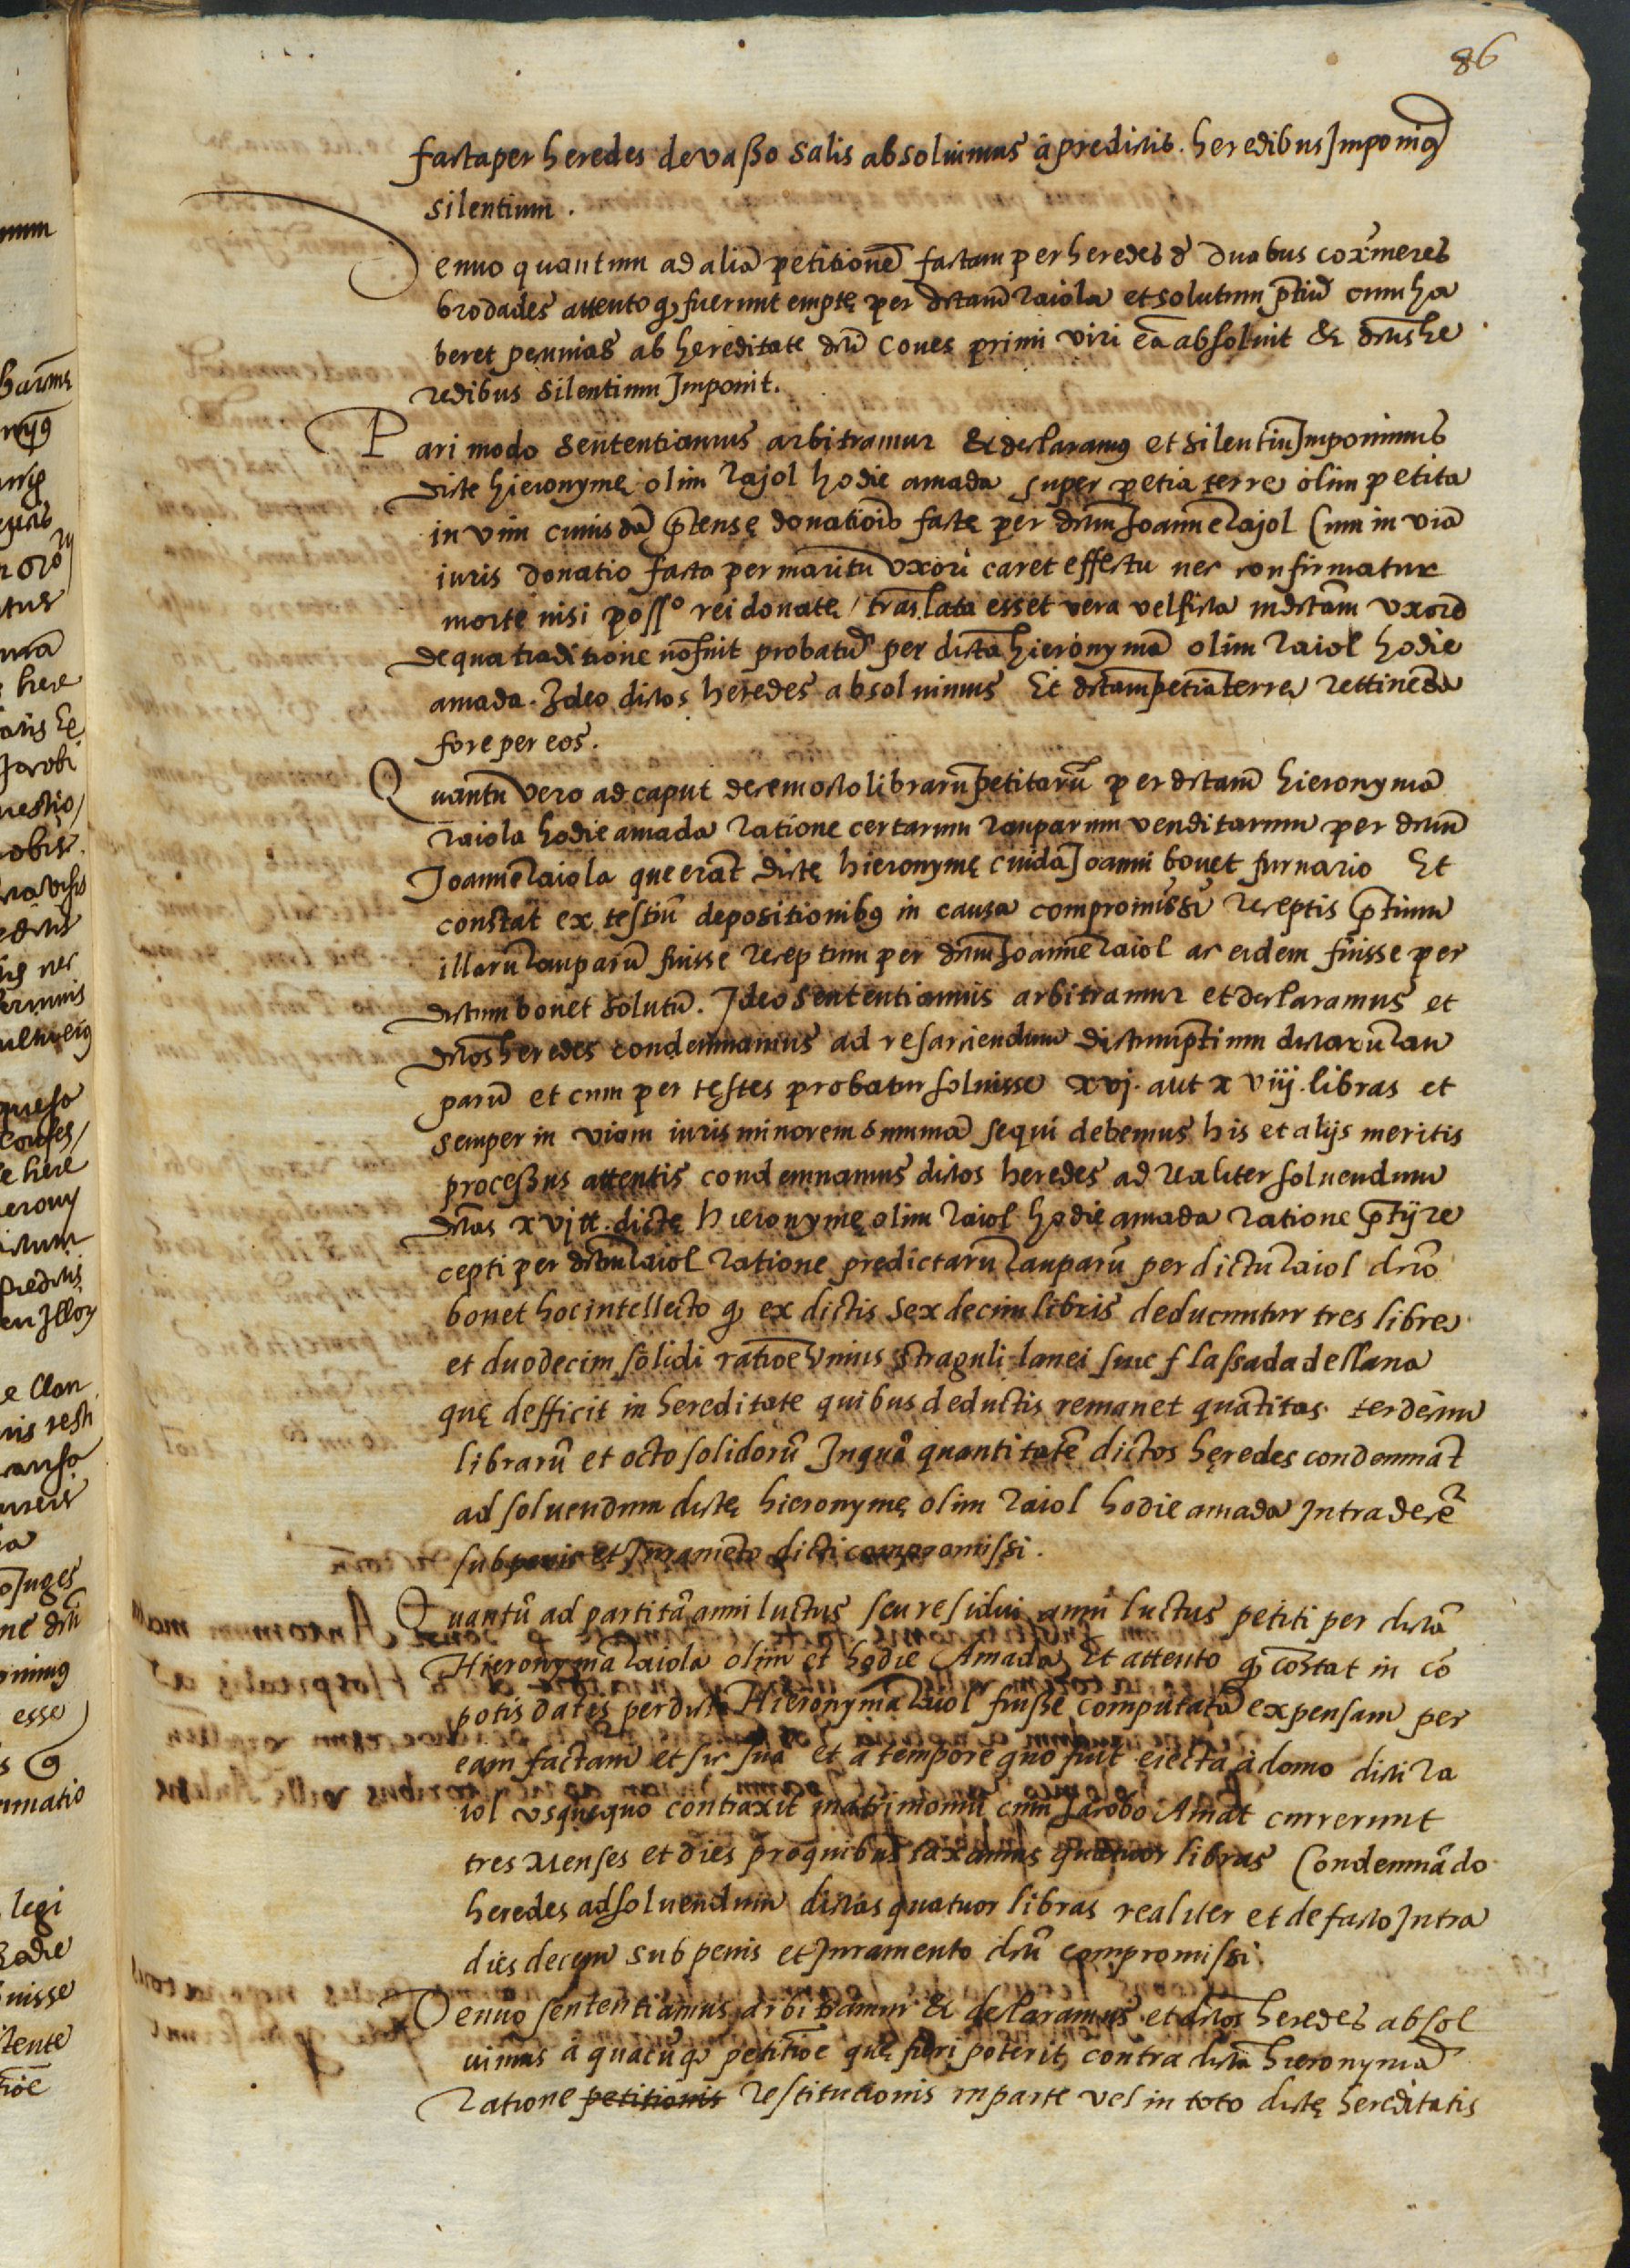 86
facta per heredes de vasso salis absoluimus a predictis heredibus Imponig
silentium.
Denuo quantum ad aliā petitionē factam per heredes d duabus coxineres
brodades attento q̨ fuerunt emptę per dictam̄ raiola et solutum p̄tiū cum ha
beret peunias ab hereditate dn̄i coues primi viri eā absoluit & dictis he
redibus silentium Imponit.
Pari modo sententiamus arbitramur & declaramus et silentiū Imponimus
dicte hieronymę olim rajol hodie amada super petia terre olim petita
in vim cuiusdā p̄tensę donatiōis factę per dictum Joannē rajol Cum in viā
iuris donatio facta per maritū vxori caret effectu nec confirmatur
morte nisi possº rei donatę / traslata esset vera vel ficta in dictam vxorē
de qua traditione nō fuit probatū per dictā hieronymā olim raiol hodie
amada. Ideo dictos heredes absoluimus Et dictam petiā terre rettinēda
fore per eos.
Quantū vero ad caput decem octo librarū petitarū per dictam̄ hieronymā
raiola hodie amada ratione certarum rauparum venditarum per dictum̄
Joannē raiola que erāt dictę hieronymę cuidā Joanni bouet furnario Et
constat ex testiū depositionibꝯ in causa compromissi receptis p̄tium
illarū rauparū fuisse receptum per dictum Joannē raiol ac eidem fuisse per
dictum bouet solutū. Ideo sententiamus arbitramur et declaramus et
dictos heredes condemnamus ad resarciendum dictum p̄tium dictarū rau
parū et cum per testes probatur soluisse xvj. aut xviij. libras et
semper in viam iuris minorem summā sequi debemus his et alijs meritis
processus attentis condemnamus dictos heredes ad realiter soluendum
dictas xvj ℔. dictę hieronymę olim raiol hodie amada ratione p̄tij re
cepti per dictum raiol ratione predictarū rauparū per dictū raiol dicto
bouet hoc intellecto q̨ ex dictis sexdecim libris deducuntur tres libre
et duodecim solidi ratiōe vnius straguli lanei siue flassada de llana
quę defficit in hereditate quibus deductis remanet quātitas terdecim
librarū et octo solidorū In quā quantitatē dictos hęredes condemnāt
ad soluendum dictę hieronymę olim raiol hodie amada Intra decē
sub penis et Iuramēto dicti compromissi.
Quantū ad partitā anni luctus seu residui anni luctus petiti per dictā
Hieronymā raiola olim et hodie Amada Et attento q̨ cōstat in cō
potis datis per dictā Hieronymā raiol fuisse computatā expensam per
eam factam et sic sua et a tempore quo fuit eiecta a domo dicti ra
iol vsquequo contraxit matrimoniū cum Jacobo Amat currerunt
tres menses et dies pro quibus taxamus quatuor libras Condemnādo
heredes ad soluendum dictas quatuor libras realiter et de facto Intra
dies decem sub penis et Iuramento dicti compromissi.
Denuo sententiamus arbitramur & declaramus et dictos heredes absol
uimus a quacūq̨ petitiōe quę fieri poterit contra dictā hieronymā
ratione petitionis restitucionis in parte vel in toto dictę hereditatis